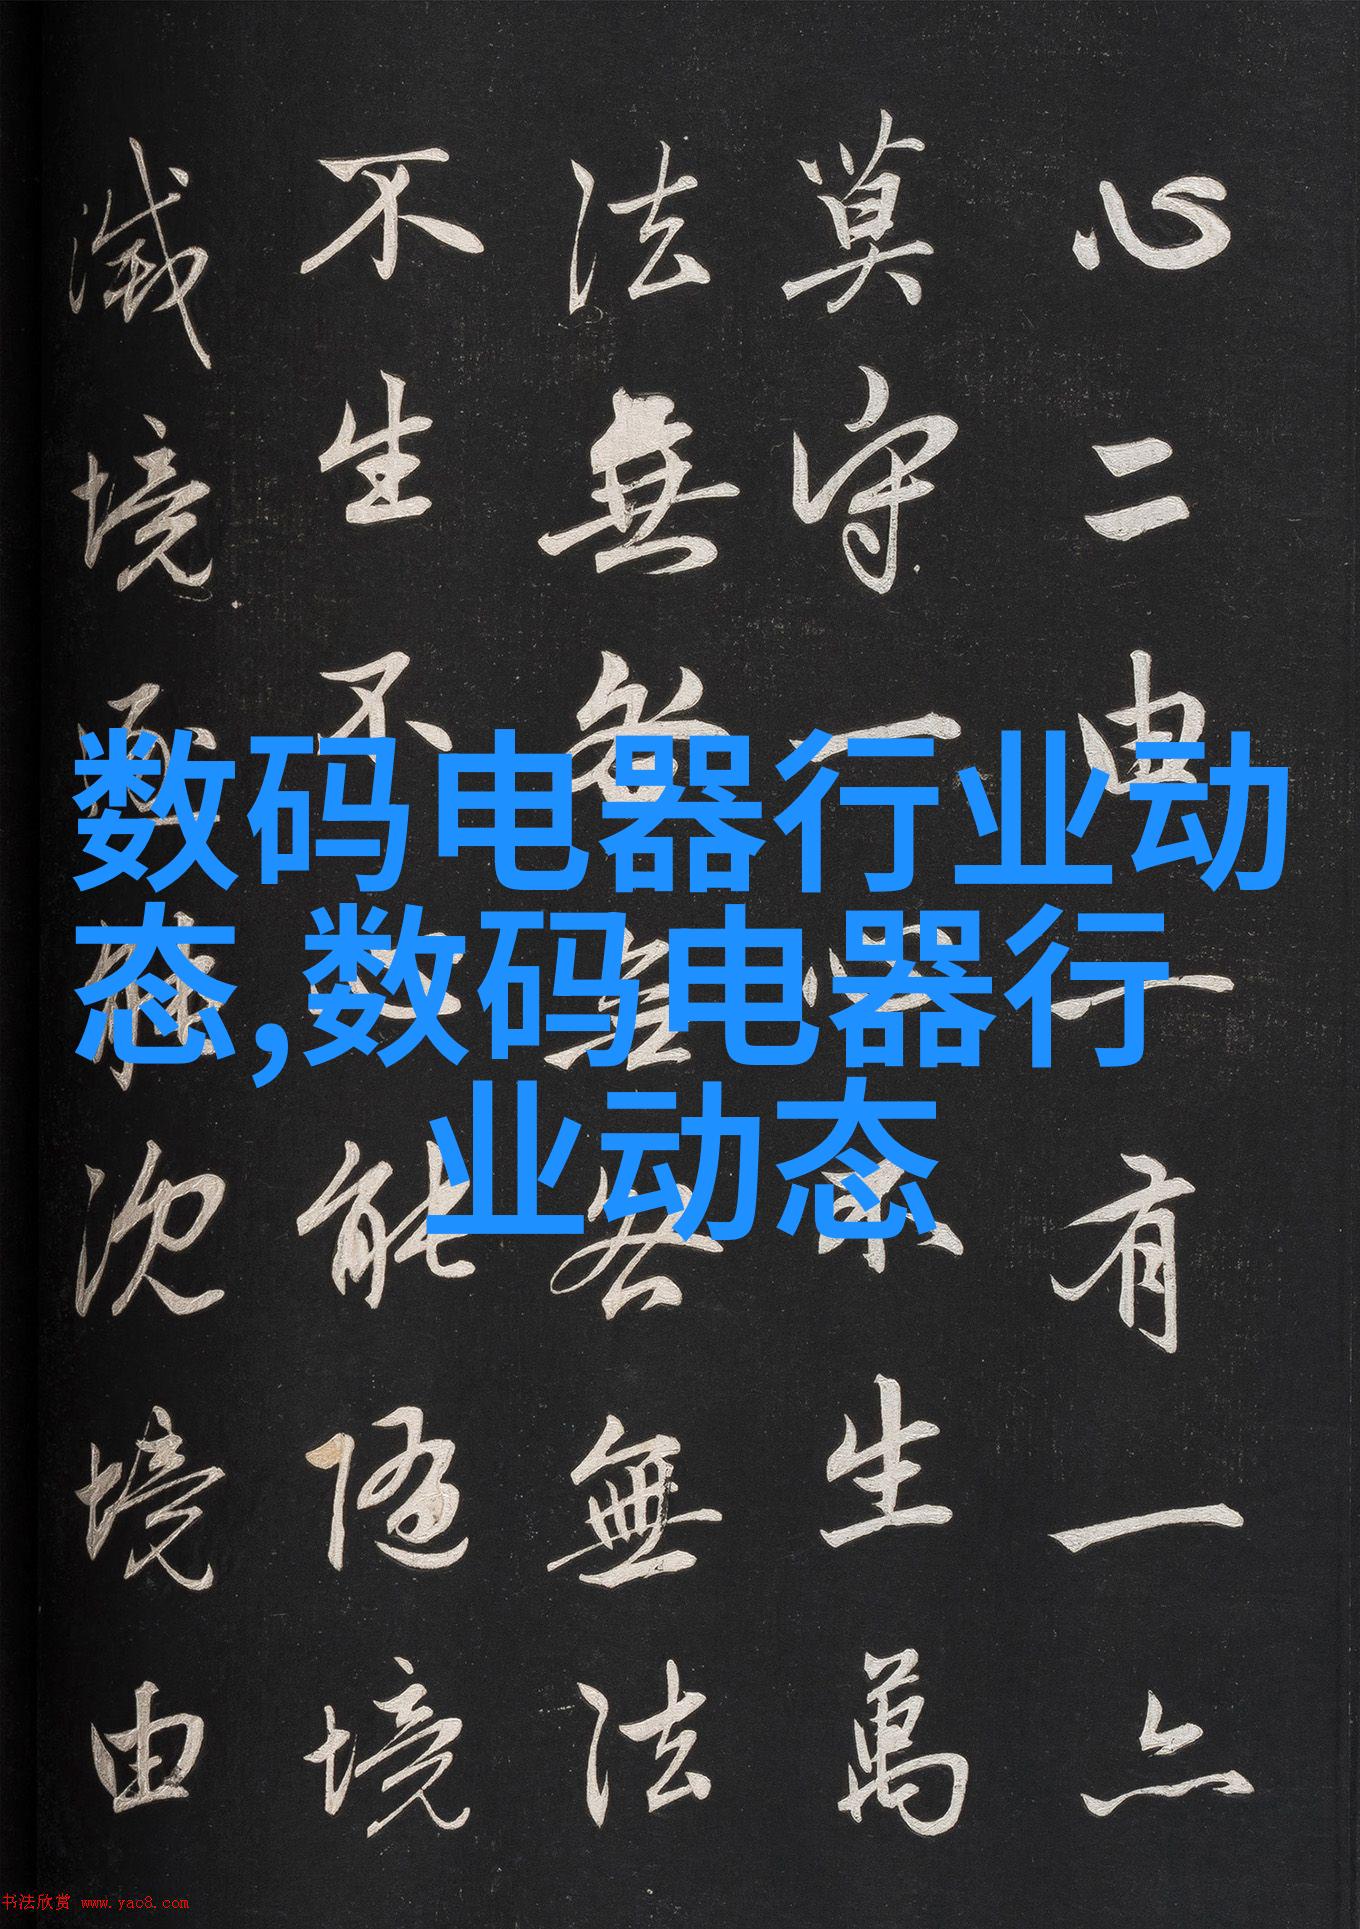 心二由一有一亦
莫守一心不生萬
法無咎無咎無法
不生不心能隨境
滅境逐能沉境由
数码电器行业动
态,数码电器行
业动态
书法欣赏 www.yac8.com